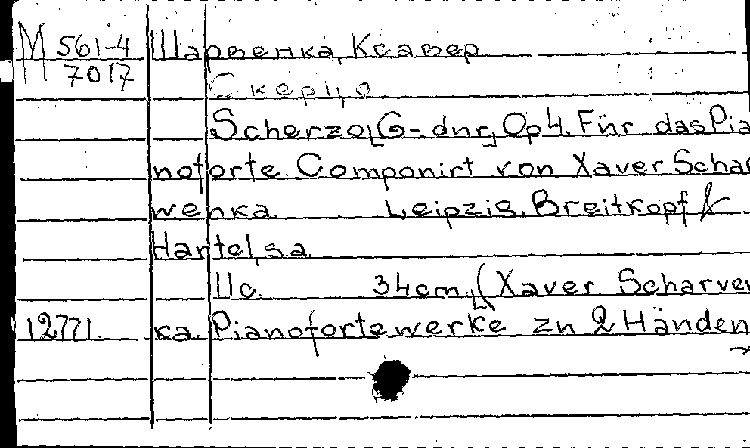 М 561-4 Шарвенка, Ксавер
7017
Скерцо
Scherzo[G-dur] Op 4. Für das Pia
noforte Componirt von Xaver Schar
wenka Leipzig. Breitkopf &
Hartel, s.a
11c. 34cm, (Xaver Scharven
12771 ka Pianofortewerke zu 2 Händen